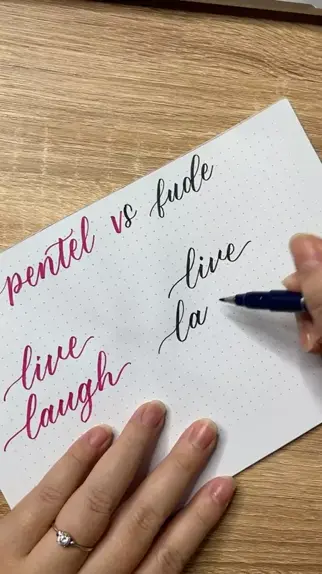 pentel vs fude
live
laugh
live
la